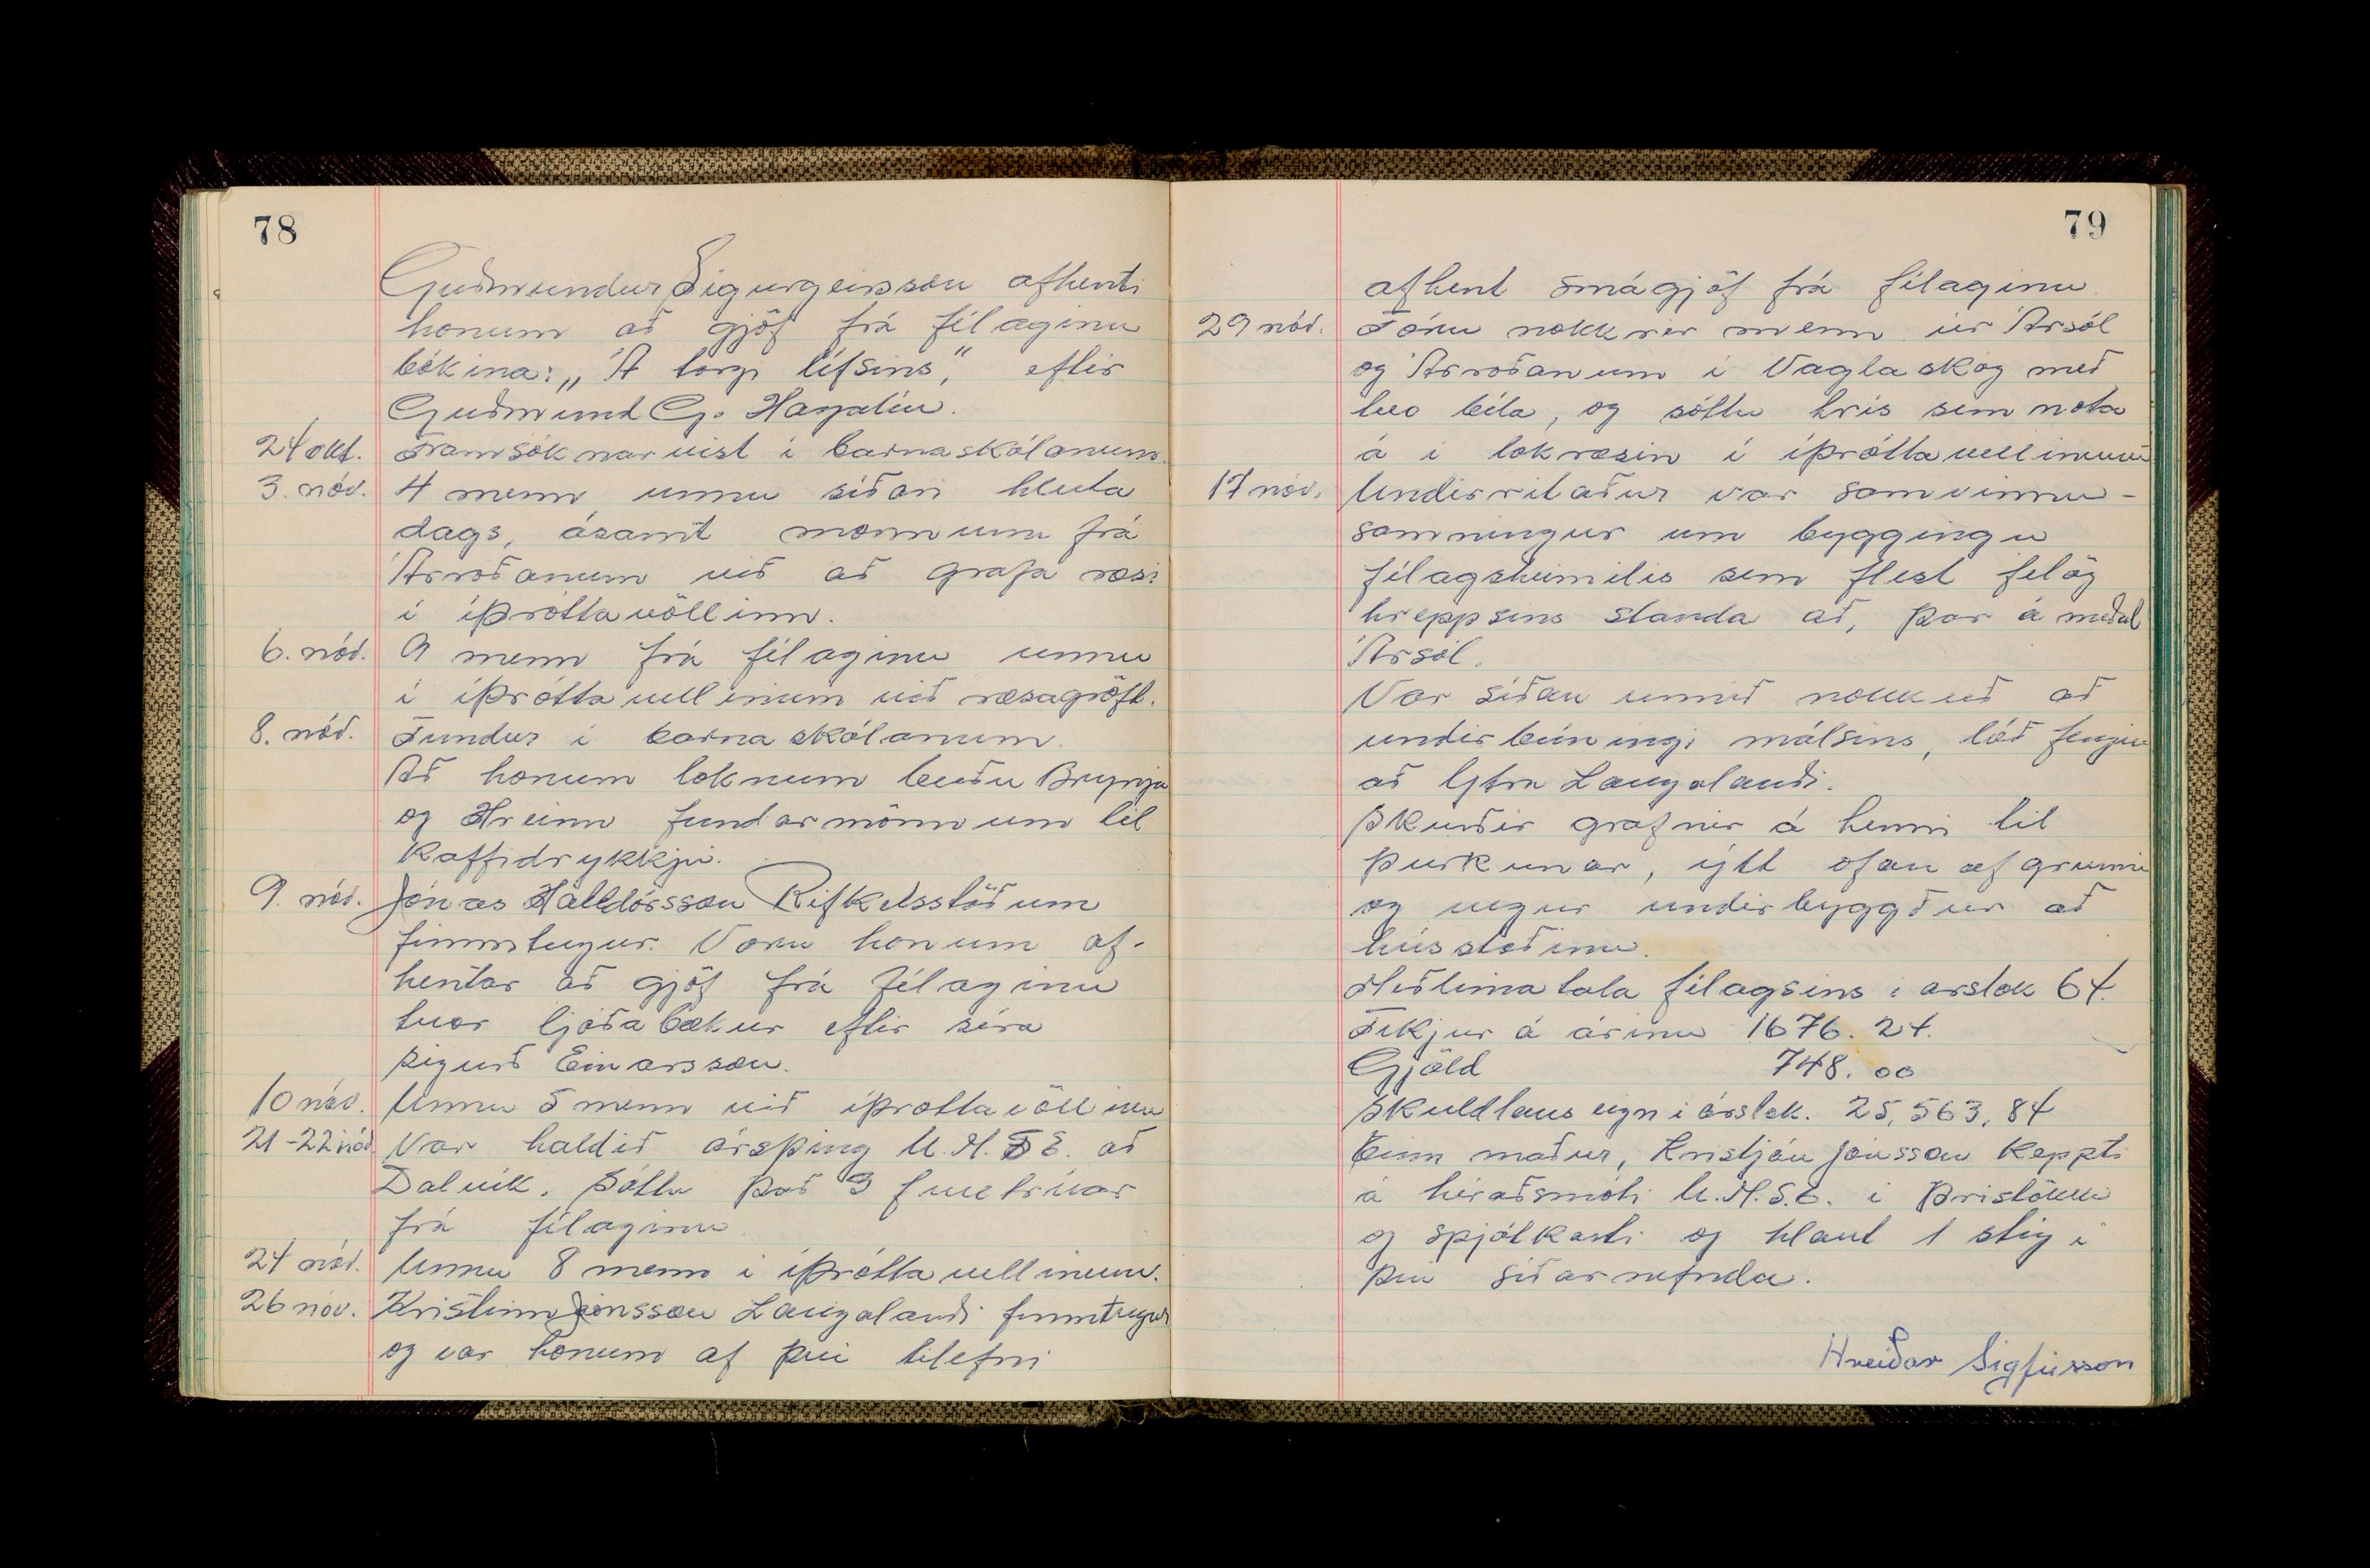 78
Guðmundur Sigurgeirsson afhenti
honum að gjöf frá félaginu
bókina: „Á torgi lífsins," eftir
Guðmund G. Hagalín.
24 okt. Framsóknarvist í barnaskólanum.
3. nóv. 4 menn unnu síðari hluta
dags, ásamt mönnum frá
Árroðanum við að grafa ræsi
í íþróttavöllinn.
6. nóv. 9 menn frá félaginu unnu
í íþróttavellinum við ræsagröft.
8. nóv. Fundur í barnaskólanum.
Að honum loknum buðu Brynja
og Hreinn fundarmönnum til
kaffidrykkju.
9. nóv. Jónas Halldórsson Rifkelsstöðum
fimmtugur. Voru honum af-
hentar að gjöf frá félaginu
tvær ljóðabækur eftir séra
Sigurð Einarsson.
10 nóv. Unnu 5 menn við íþróttavöllinn
21-22 nóv. Var haldið ársþing U.M.S.E. að
Dalvík. Sóttu það 3 fulltrúar
frá félaginu.
24 nóv. Unnu 8 menn í íþróttavellinum.
26 nóv. Kristinn Jónsson Laugalandi fimmtugur
og var honum af því tilefni
79
afhent smágjöf frá félaginu
29 nóv. Fóru nokkrir menn úr Ársól
og Árroðanum í Vaglaskóg með
tvo bíla, og sóttu hrís sem nota
á í lokræsin í íþróttavellinum
17 nóv. Undirritaður var samvinnu-
samningur um byggingu
félagsheimilis sem flest félög
hreppsins standa að, þar á meðal
Ársól.
Var síðan unnið nokkuð að
undirbúningi málsins, lóð fengin
að Ytra Laugalandi.
Skurðir grafnir á henni til
þurkunar, ýtt ofan af grunni
og vegur undirbyggður að
hússtæðinu.
Meðlimatala félagsins í árslok 64.
Tekjur á árinu 1676.24.
Gjöld 748.00
Skuldlaus eign í árslok. 25,563,84
Einn maður, Kristján Jónsson keppti
á héraðsmóti U.M.S.E. í þrístökki
og spjótkasti og hlaut 1 stig í
því síðarnefnda.
Hreiðar Sigfússon